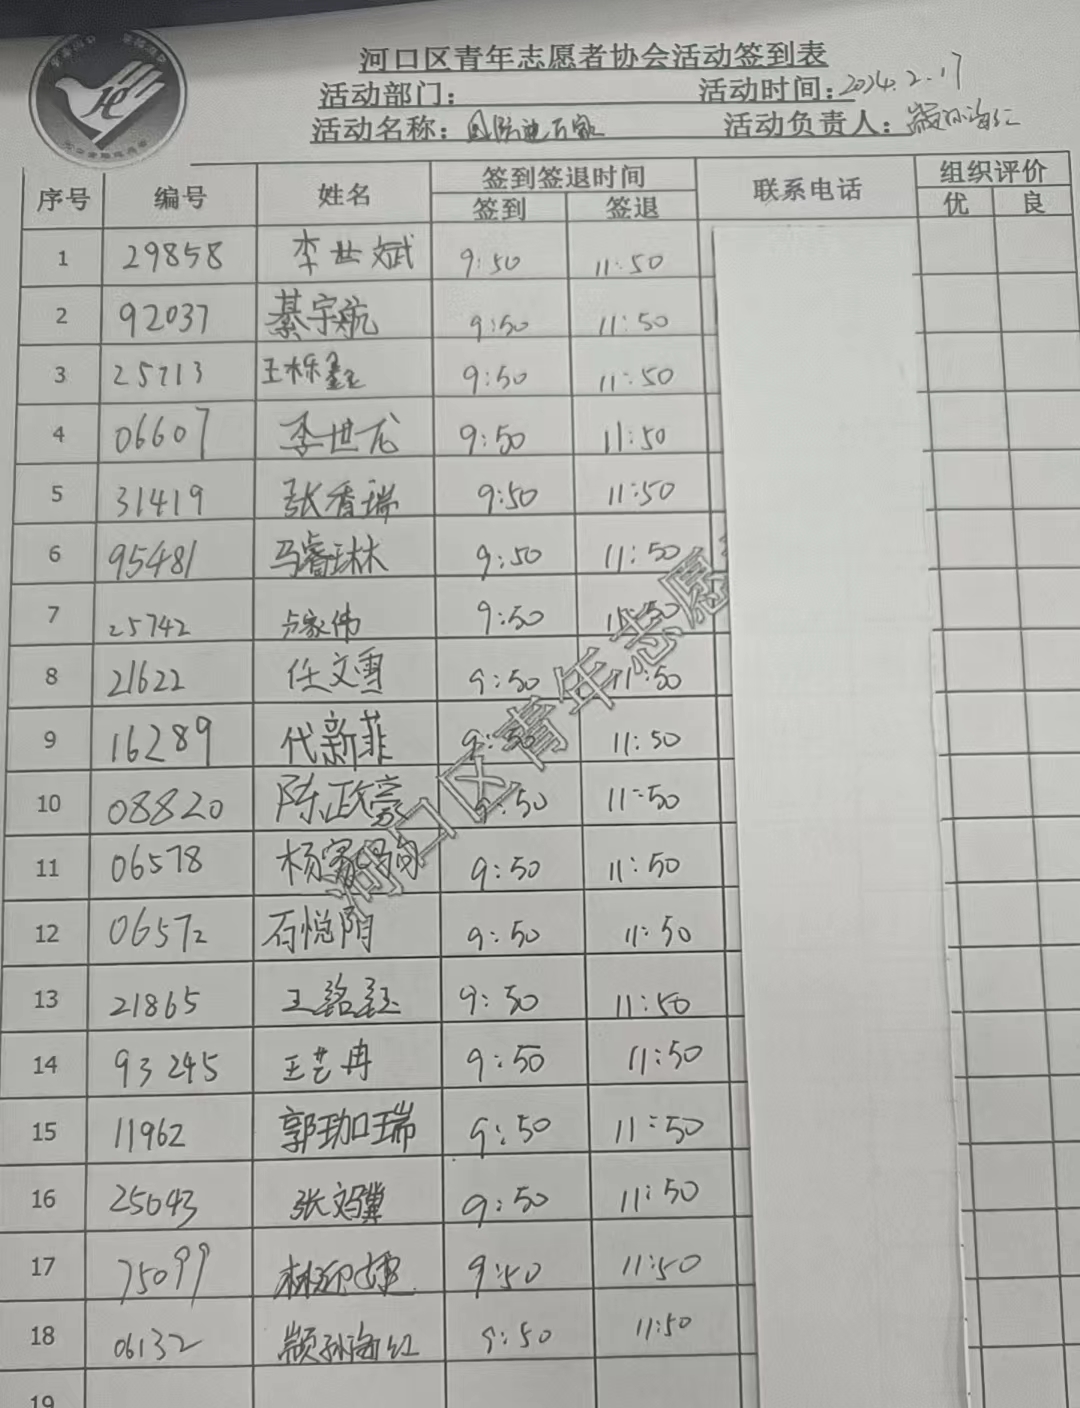 河口区青年志愿者协会活动签到表
活动部门: 活动时间:2024.2.17
活动名称: 活动负责人:颛孙海红
序号 编号 姓名 签到签退时间 联系电话 组织评价
签到 签退 优 良
1 29858 李世斌 9:50 11:50
2 92037 綦宇航 9:50 11:50
3 25713 王栎鑫 9:50 11:50
4 06607 李世龙 9:50 11:50
5 31419 张香瑞 9:50 11:50
6 95481 马睿琳 9:50 11:50
7 25742 卢家伟 9:50 11:50
8 21622 任文雪 9:50 11:50
9 16289 代新菲 9:50 11:50
10 08820 陈政豪 9:50 11:50
11 06578 杨 9:50 11:50
12 06572 石悦阳 9:50 11:50
13 21865 王铭钰 9:50 11:50
14 93245 王艺冉 9:50 11:50
15 11962 郭珈瑞 9:50 11:50
16 25043 张文骥 9:50 11:50
17 75099 林 9:50 11:50
18 06132 颛孙海红 9:50 11:50
19
河口区青年志愿